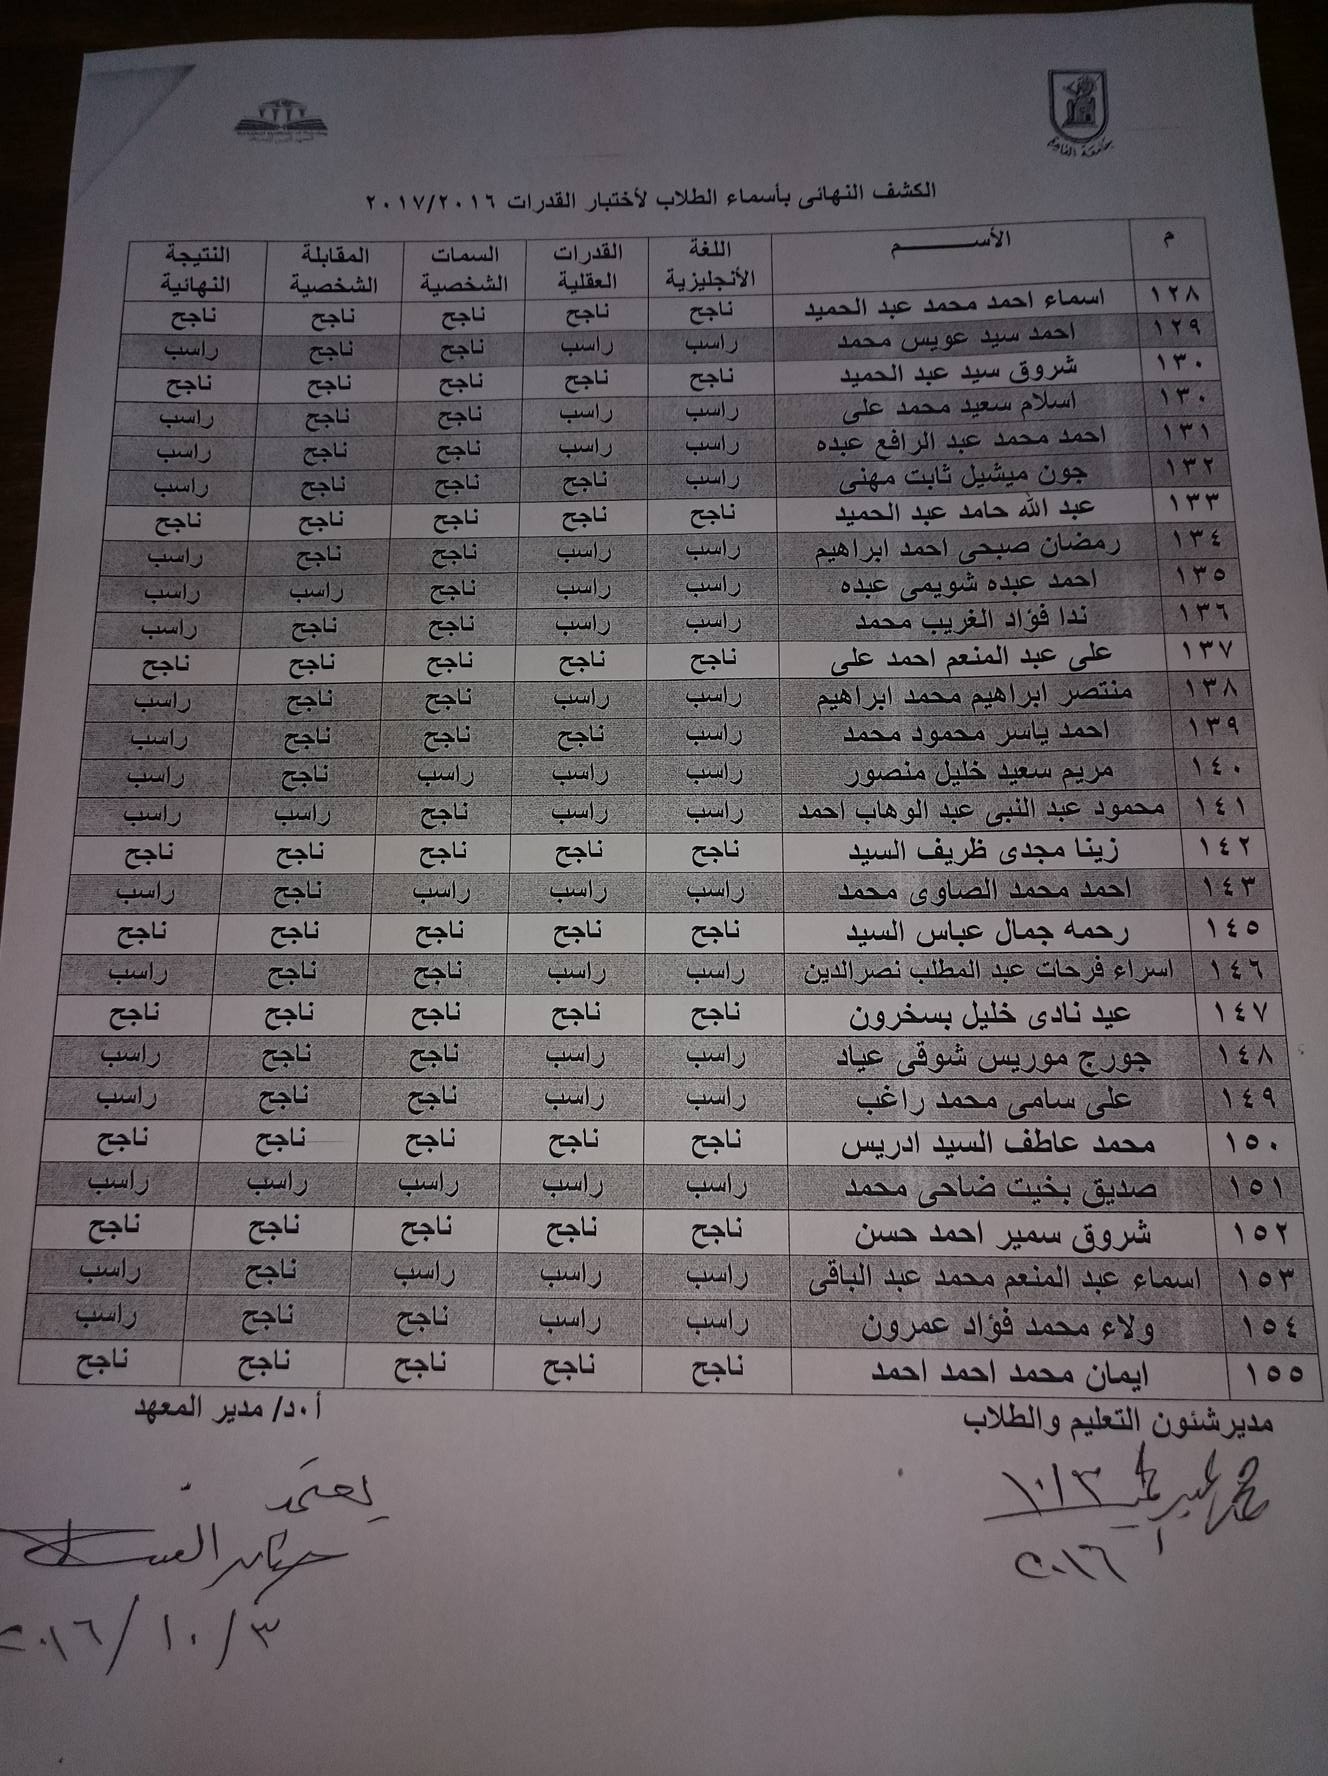 جامعة القاهرة
الكشف النهائى بأسماء الطلاب لأختبار القدرات ٢٠١٧/٢٠١٦
م الأســـــــم اللغة الأنجليزية القدرات العقلية السمات الشخصية المقابلة الشخصية النتيجة النهائية
١٢٨ اسماء احمد محمد عبد الحميد ناجح ناجح ناجح ناجح ناجح
١٢٩ احمد سيد عويس محمد راسب راسب ناجح ناجح راسب
١٣٠ شروق سيد عبد الحميد ناجح ناجح ناجح ناجح ناجح
١٣٠ اسلام سعيد محمد على راسب راسب ناجح ناجح راسب
١٣١ احمد محمد عبد الرافع عبده راسب راسب ناجح ناجح راسب
١٣٢ جون ميشيل ثابت مهنى راسب ناجح ناجح ناجح راسب
١٣٣ عبد الله حامد عبد الحميد ناجح ناجح ناجح ناجح ناجح
١٣٤ رمضان صبحى احمد ابراهيم راسب راسب ناجح ناجح راسب
١٣٥ احمد عبده شويمى عبده راسب راسب ناجح راسب راسب
١٣٦ ندا فؤاد الغريب محمد راسب راسب ناجح ناجح راسب
١٣٧ على عبد المنعم احمد على ناجح ناجح ناجح ناجح ناجح
١٣٨ منتصر ابراهيم محمد ابراهيم راسب راسب ناجح ناجح راسب
١٣٩ احمد ياسر محمود محمد راسب ناجح ناجح ناجح راسب
١٤٠ مريم سعيد خليل منصور راسب راسب راسب ناجح راسب
١٤١ محمود عبد النبى عبد الوهاب احمد راسب راسب ناجح راسب راسب
١٤٢ زينا مجدى ظريف السيد ناجح ناجح ناجح ناجح ناجح
١٤٣ احمد محمد الصاوى محمد راسب راسب راسب ناجح راسب
١٤٥ رحمه جمال عباس السيد ناجح ناجح ناجح ناجح ناجح
١٤٦ اسراء فرحات عبد المطلب نصرالدين راسب راسب ناجح ناجح راسب
١٤٧ عيد نادى خليل بسخرون ناجح ناجح ناجح ناجح ناجح
١٤٨ جورج موريس شوقى عياد راسب راسب ناجح ناجح راسب
١٤٩ على سامى محمد راغب راسب راسب ناجح ناجح راسب
١٥٠ محمد عاطف السيد ادريس ناجح ناجح ناجح ناجح ناجح
١٥١ صديق بخيت ضاحى محمد راسب راسب راسب راسب راسب
١٥٢ شروق سمير احمد حسن ناجح ناجح ناجح ناجح ناجح
١٥٣ اسماء عبد المنعم محمد عبد الباقى راسب راسب راسب ناجح راسب
١٥٤ ولاء محمد فؤاد عمرون راسب راسب ناجح ناجح راسب
١٥٥ ايمان محمد احمد احمد ناجح ناجح ناجح ناجح ناجح
مديرشئون التعليم والطلاب أ.د/ مدير المعهد
١٠/٣
٢٠١٦
يعتمد
٢٠١٦/١٠/٣